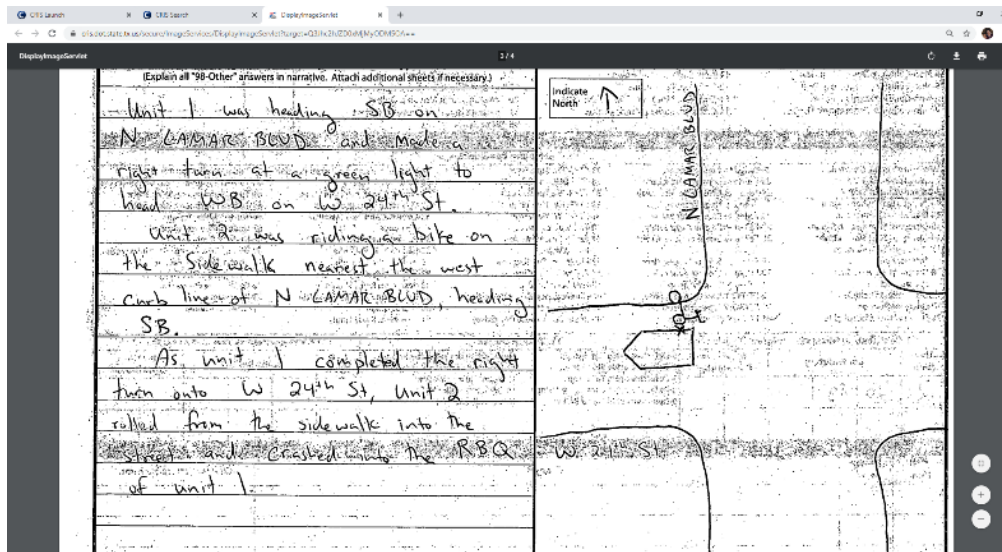 CRIS Launch
CRIS Search
DisplayImageServlet
DisplayImageServlet
3 / 4
(Explain all "98-Other" answers in narrative. Attach additional sheets if necessary.)
Unit 1 was heading SB on
N LAMAR BLVD and made a
right turn at a green light to
head WB on W 24th St.
Unit 2 was riding a bike on
the sidewalk nearest the west
curb line of N LAMAR BLVD, heading
SB.
As unit 1 completed the right
turn onto W 24th St, Unit 2
rolled from the sidewalk into the
street and crashed into the RBQ
of unit 1.
Indicate
North
N LAMAR BLVD
W. 24 St